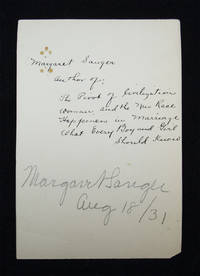 Margaret Sanger
Author of;
The Pivot of Civilization
Woman and the New Race
Happiness in Marriage
What Every Boy and Girl
Should Know
Margaret Sanger
Aug 18/31